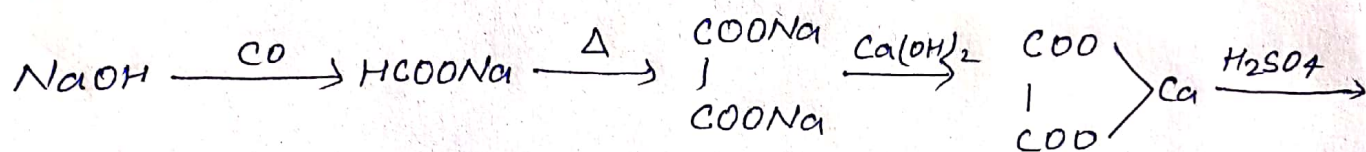 NaOH —CO→ HCOONa —Δ→ COONa | COONa —Ca(OH)2→ COO | COO > Ca —H2SO4→